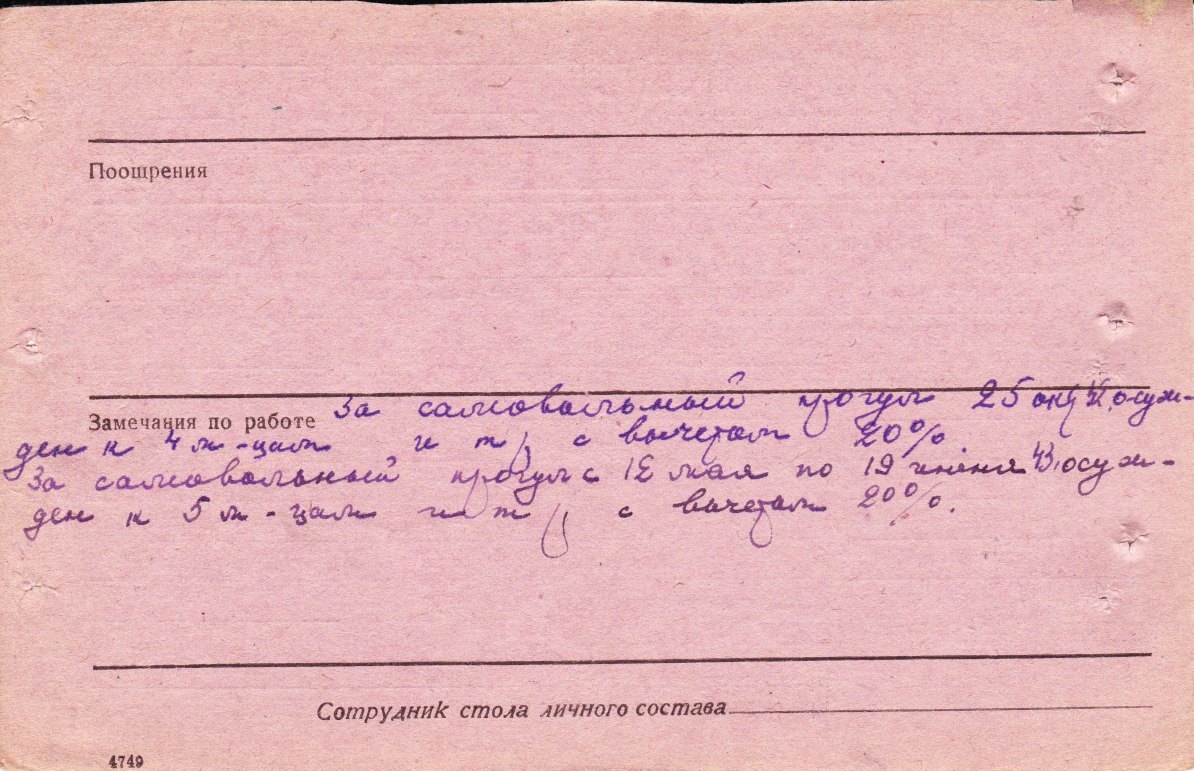 Поощрения
Замечания по работе За самовольный прогул 25 окт, осуж-
ден к 4 м-цам и т р с вычетом 20%.
За самовольный прогул с 12 мая по 19 июня 43, осуж-
ден к 5 м-цам и т р с вычетом 20%.
Сотрудник стола личного состава
4749